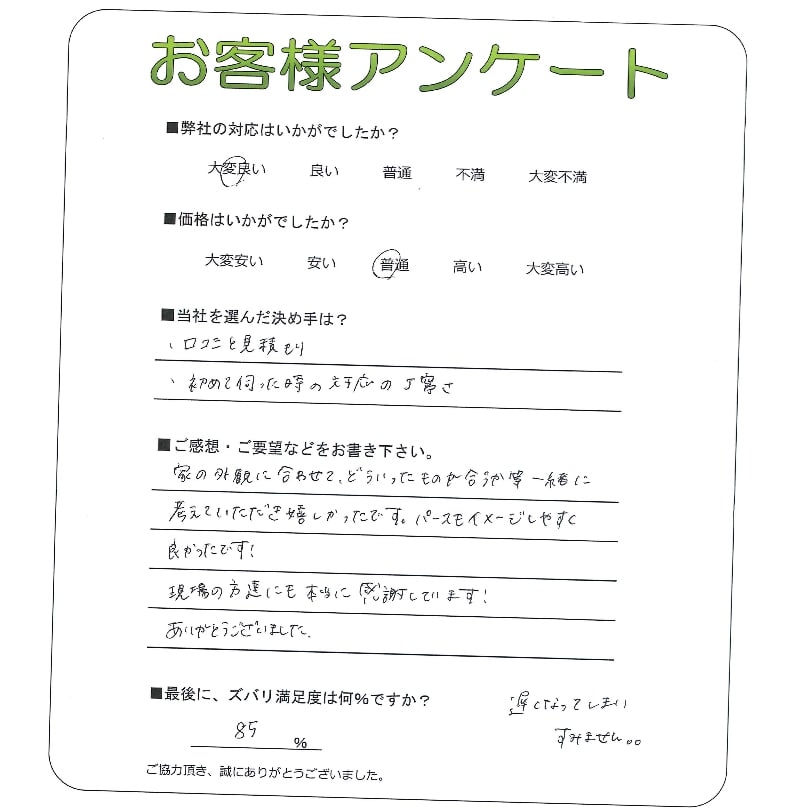 お客様アンケート
■弊社の対応はいかがでしたか？
大変良い 良い 普通 不満 大変不満
■価格はいかがでしたか？
大変安い 安い 普通 高い 大変高い
■当社を選んだ決め手は？
、口コミと見積もり
、初めて伺った時の対応の丁寧さ
■ご感想・ご要望などをお書き下さい。
家の外観に合わせて、どういったものが合うか等一緒に
考えていただき嬉しかったです。パースもイメージしやすく
良かったです！
現場の方達にも本当に感謝しています！
ありがとうございました。
■最後に、ズバリ満足度は何％ですか？
85 ％
遅くなってしまい
すみません。。
ご協力頂き、誠にありがとうございました。